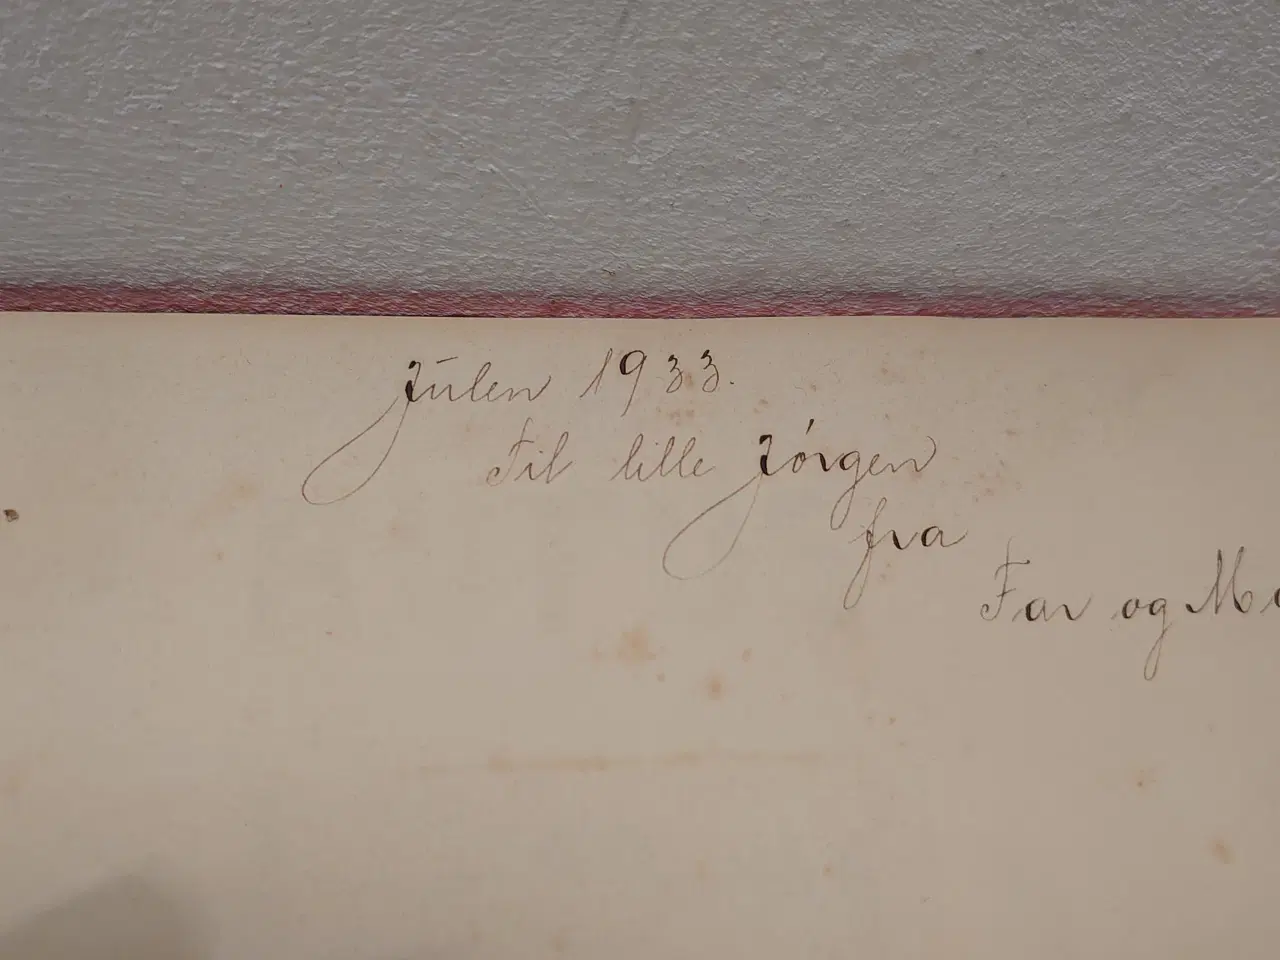 Julen 1933.
Til lille Jórgen
fra
Far og